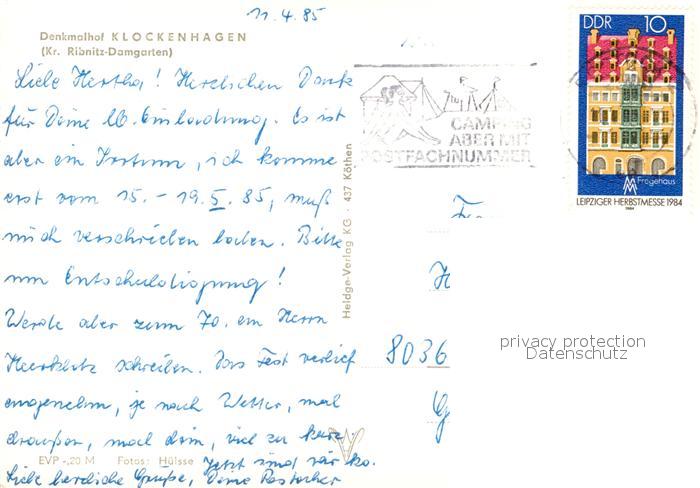 11.4.85
Denkmalhof KLOCKENHAGEN
(Kr. Ribnitz-Damgarten)
Liebe Hertha! Herzlichen Dank
für Deine lb. Einladung. Es ist
aber ein Irrtum, ich komme
erst vom 15. - 19.5. 85, muß
mich verschrieben haben. Bitte
um Entschuldigung!
Werde aber zum 70. an Herrn
schreiben. Das Fest verlief
angenehm, je nach Wetter, mal
draußen, mal drin, viel zu kurz.
Jetzt sind wir ko.
Liebe herzliche Grüße, Deine
EVP -,20 M Fotos: Hülsse
Heldge-Verlag KG · 437 Köthen
CAMPING
ABER MIT
POSTFACHNUMMER
DDR 10
Fregehaus
LEIPZIGER HERBSTMESSE 1984
1984
8036
privacy protection
Datenschutz